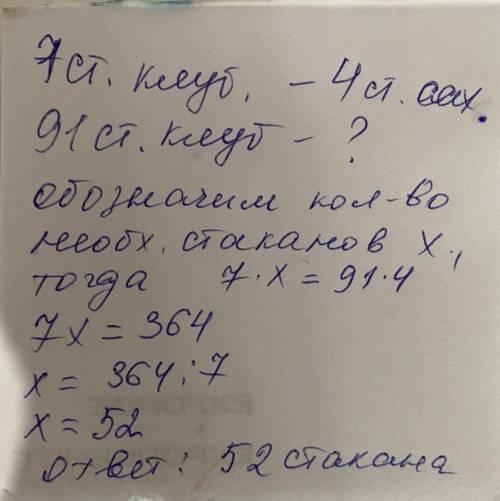 7 ст. клуб. - 4 ст. сах.
91 ст. клуб - ?
обозначим кол-во
необх. стаканов х.,
тогда 7·х = 91·4
7х = 364
х = 364:7
х = 52
ответ: 52 стакана